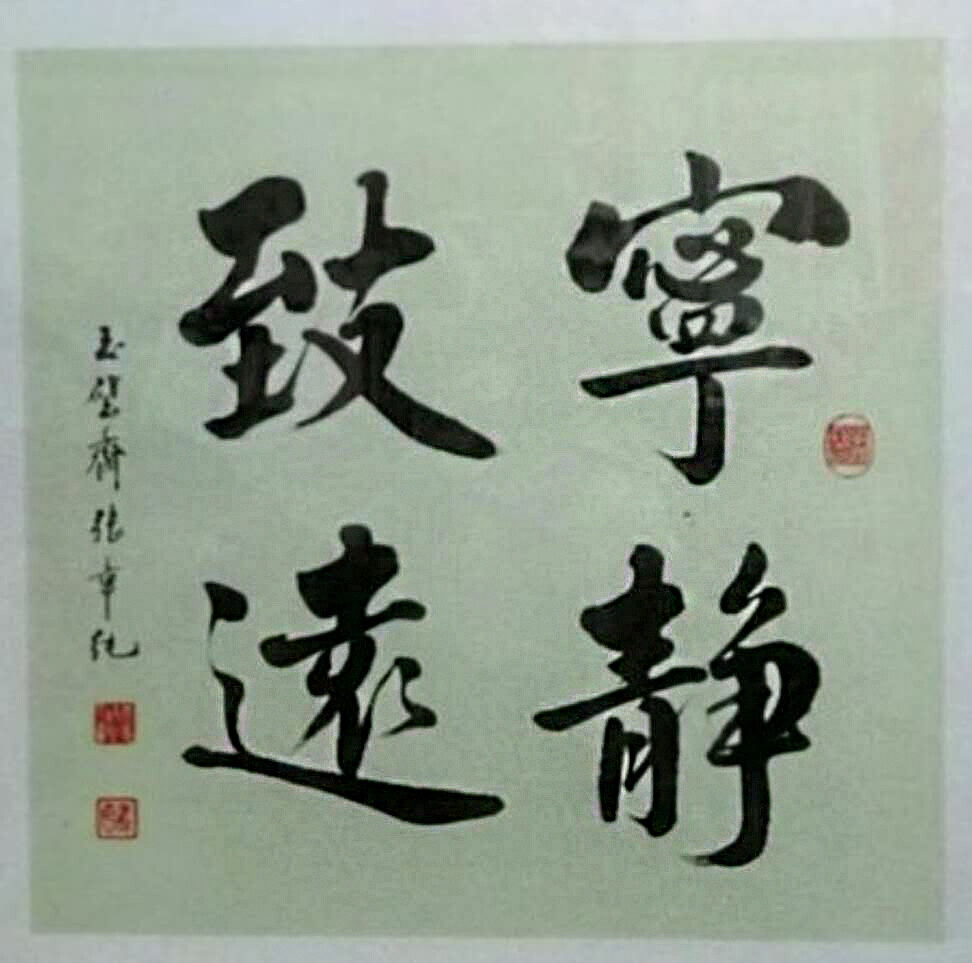 寧靜
致遠
玉壁齋張章純